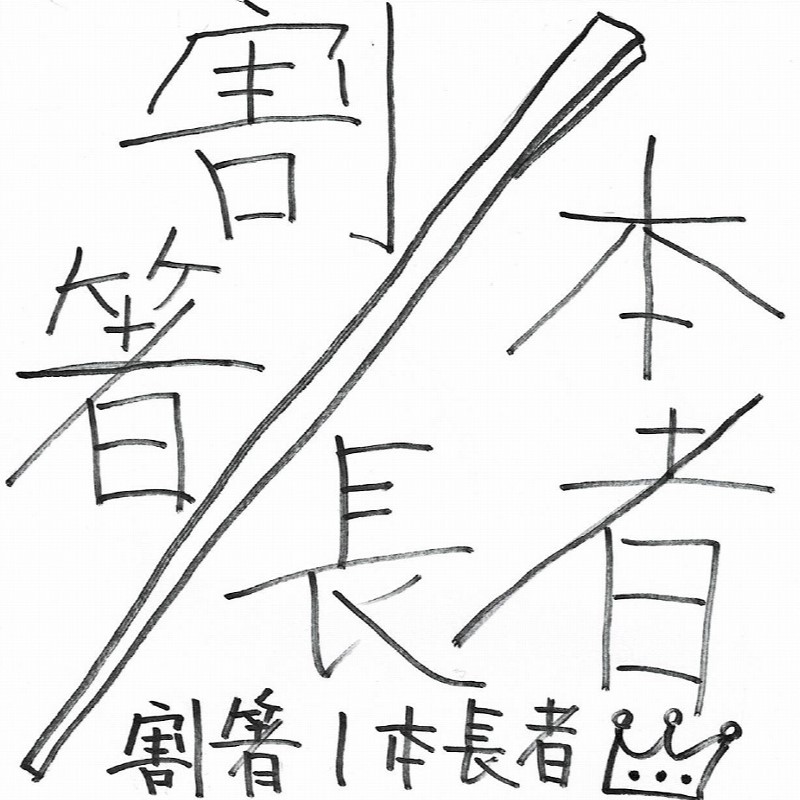 割箸
本
長者
割箸1本長者